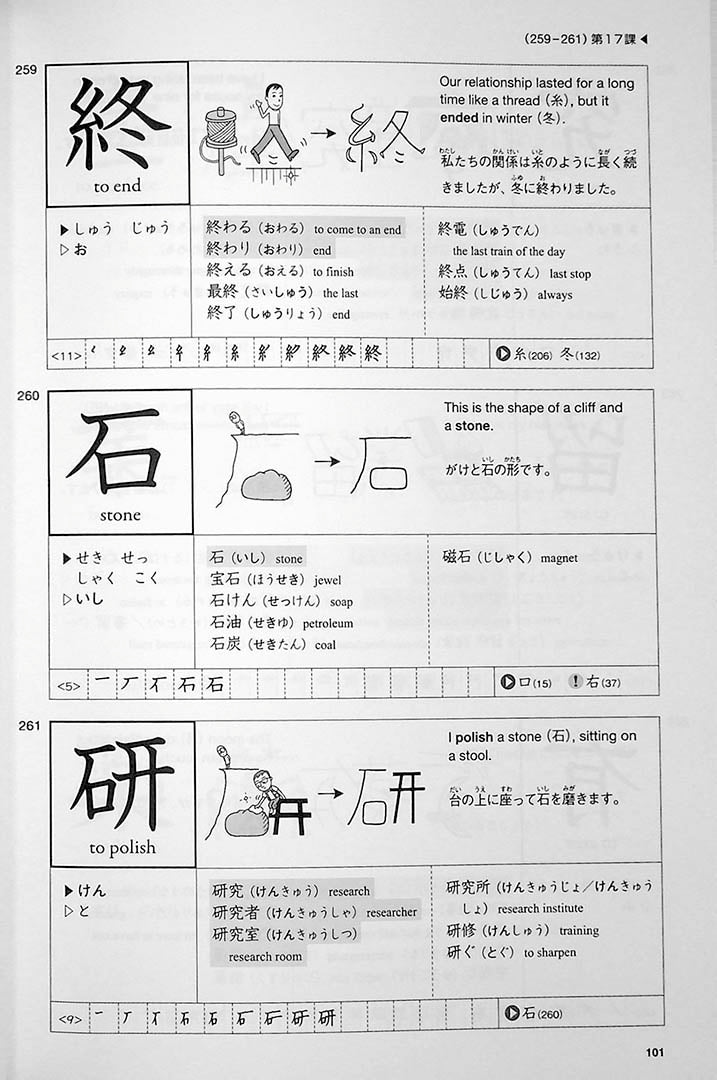 (259–261) 第17課◀
259
終
to end
Our relationship lasted for a long
time like a thread (糸), but it
ended in winter (冬).
私たちの関係は糸のように長く続
きましたが、冬に終わりました。
わたし かんけい いと なが つづ
ふゆ お
▶しゅう じゅう
▷お
終わる（おわる） to come to an end
終わり（おわり） end
終える（おえる） to finish
最終（さいしゅう） the last
終了（しゅうりょう） end
終電（しゅうでん）
the last train of the day
終点（しゅうてん） last stop
始終（しじゅう） always
<11>
糸(206) 冬(132)
260
石
stone
This is the shape of a cliff and
a stone.
いし かたち
がけと石の形です。
▶せき せっ
しゃく こく
▷いし
石（いし） stone
宝石（ほうせき） jewel
石けん（せっけん） soap
石油（せきゆ） petroleum
石炭（せきたん） coal
磁石（じしゃく） magnet
<5>
口(15) 右(37)
261
研
to polish
I polish a stone (石), sitting on
a stool.
だい うえ すわ いし みが
台の上に座って石を磨きます。
▶けん
▷と
研究（けんきゅう） research
研究者（けんきゅうしゃ） researcher
研究室（けんきゅうしつ）
research room
研究所（けんきゅうじょ／けんきゅう
しょ） research institute
研修（けんしゅう） training
研ぐ（とぐ） to sharpen
<9>
石(260)
101